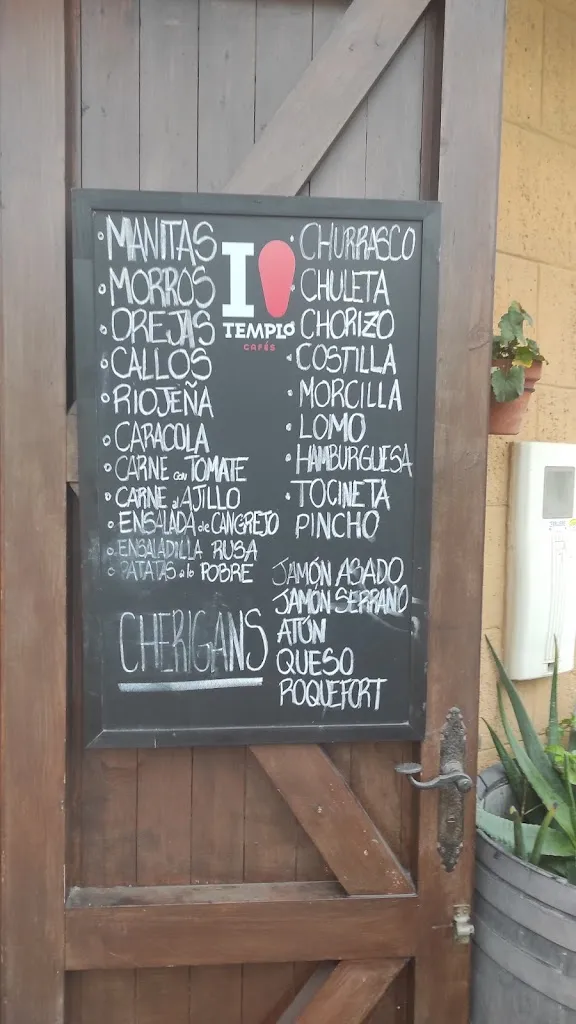 MANITAS
MORROS
OREJAS
CALLOS
RIOJEÑA
CARACOLA
CARNE con TOMATE
CARNE al AJILLO
ENSALADA de CANGREJO
ENSALADILLA RUSA
PATATAS a lo POBRE
CHERIGANS
I
TEMPLO
CAFÉS
CHURRASCO
CHULETA
CHORIZO
COSTILLA
MORCILLA
LOMO
HAMBURGUESA
TOCINETA
PINCHO
JAMÓN ASADO
JAMÓN SERRANO
ATÚN
QUESO
ROQUEFORT